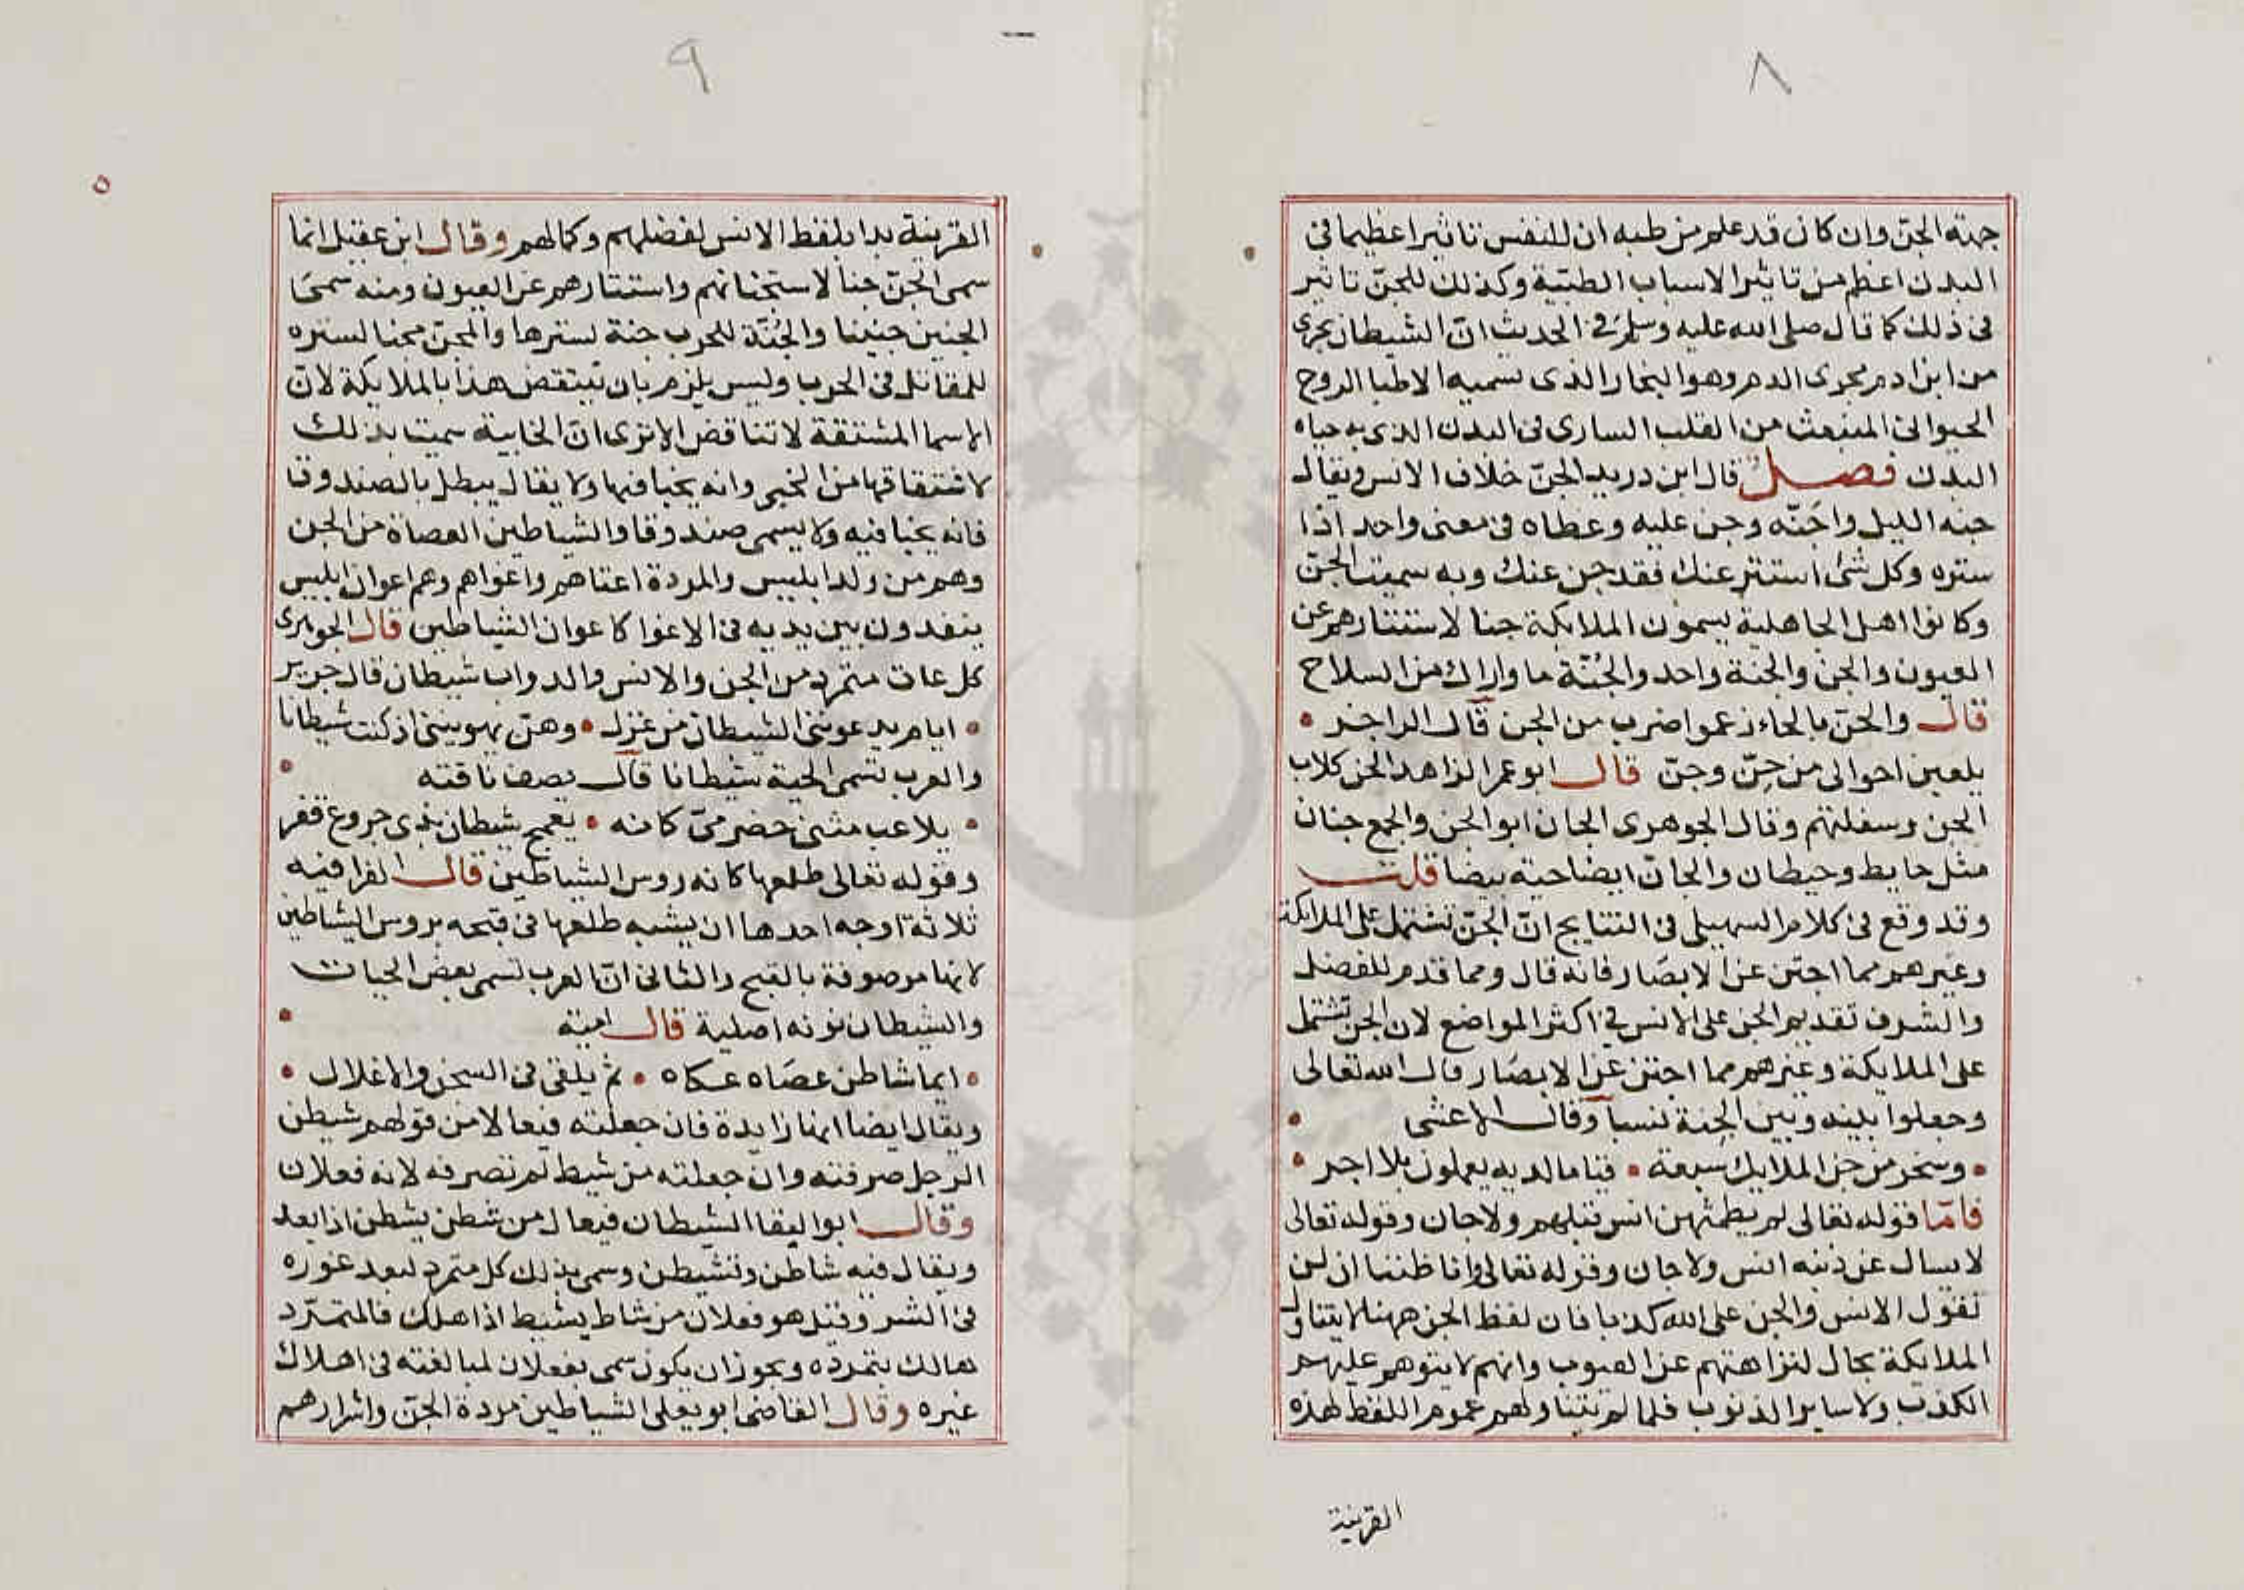 ٨
جهة الجنّ وان كان قد علم من طبه ان للنفس تاثيرا عظيما فى
البدن اعظم من تاثير الاسباب الطبّية وكذلك للجنّ تاثير
فى ذلك كما قال صلى الله عليه وسلم فى الحديث انّ الشيطان يجرى
من ابن ادم مجرى الدم وهو البخار الذى تسميه الاطبا الروح
الحيوانى المنبعث من القلب السارى فى البدن الذى به حياه
البدن فصل قال ابن دريد الجنّ خلاف الانس ويقال
جنه الليل واجَنّه وجن عليه وغطاه فى معنى واحد اذا
ستره وكل شئ استتر عنك فقد جن عنك وبه سميت الجنّ
وكانوا اهل الجاهلية يسمون الملايكة جنا لاستتارهم عن
العيون والجن والجنة واحد والجُنّة ما واراك من السلاح
قال والحنّ بالحاء زعموا ضرب من الجن قال الراجز •
يلعبن احوالى من حِنّ وجنّ قال ابو عمر الزاهد الحن كلاب
الجن وسفلتهم وقال الجوهرى الجان ابو الجن والجمع جنان
مثل حايط وحيطان والجانّ ايضا حية بيضا قلت
وقد وقع فى كلام السهيلى فى النتايج انّ الجنّ تشتمل على الملايكة
وغيرهم مما اجتن عن الابصَار فانه قال ومما قدم للفضل
والشرف تقديم الجن على الانس فى اكثر المواضع لان الجن تشتمل
على الملايكة وغيرهم مما اجتن عن الابصَار قال الله تعالى
وجعلوا بينه وبين الجِنة نسبا وقال الاعشى •
• وسخر من جن الملايك سبعة • قياما لديه يعملون بلا اجر •
فامّا قوله تعالى لم يطمثهن انس قبلهم ولا جان وقوله تعالى
لا يسال عن ذنبه انس ولا جان وقوله تعالى وانا ظننا ان لن
تقول الانس والجن على الله كذبا فان لفظ الجن ههنا لا يتناول
الملايكة بحال لنزاهتهم عن العيوب وانهم لا يتوهم عليهم
الكذب ولا ساير الذنوب فلما لم يتناولهم عموم اللفظ لهذه
القرينة
٩
٥
القرينة بدا بلفظ الانس لفضلهم وكمالهم وقال ابن عقيل انما
سمى الجنّ جنا لاستجنانهم واستتارهم عن العيون ومنه سمى
الجنين جنينا والجُنّة للحرب جنة لسترها والمجنّ مجنا لستره
للمقاتل فى الحرب وليس يلزم بان ينتقض هذا بالملايكة لانّ
الاسما المشتقة لا تتناقض الا ترى انّ الخابية سميت بذلك
لاشتقاقها من الخبى وانه يخبا فيها ولا يقال يبطل بالصندوق
فانه يخبا فيه ولا يسمى صندوقا والشياطين العصاة من الجن
وهم من ولد ابليس والمردة اعتاهم واغواهم وهم اعوان ابليس
ينفدون بين يديه فى الاغوا كاعوان الشياطين قال الجوهرى
كل عات متمرد من الجن والانس والدواب شيطان قال جرير
• ايام يدعوننى الشيطان من غزل • وهنّ يهويننى اذ كنت شيطانا
والعرب تسمى الحية شيطانا قال يصف ناقته •
• يلاعب مثنى حضرمىّ كانه • تعمج شيطان بذى خروع قفر
وقوله تعالى طلعها كانه روس الشياطين قال الفرا فيه
ثلاثة اوجه احدها ان يشبه طلعها فى قبحه بروس الشياطين
لانها موصوفة بالقبح والثانى انّ العرب تسمى بعض الحيات
والشيطان نونه اصلية قال امية •
• ايما شاطن عصَاه عكاه • ثم يلقى فى السجن والاغلال •
ويقال ايضا انها زايدة فان جعلته فيعالا من قولهم شيطن
الرجل صرفته وان جعلته من شيط لم تصرفه لانه فعلان
وقال ابو البقا الشيطان فيعال من شطن يشطن اذا بعد
ويقال فيه شاطن وتشيطن وسمى بذلك كل متمرد لبعد غوره
فى الشر وقيل هو فعلان من شاط يشيط اذا هلك فالمتمرّد
هالك بتمرده ويجوز ان يكون سمى بفعلان لمبالغته فى اهلاك
غيره وقال القاضى ابو يعلى الشياطين مردة الجنّ واشرارهم